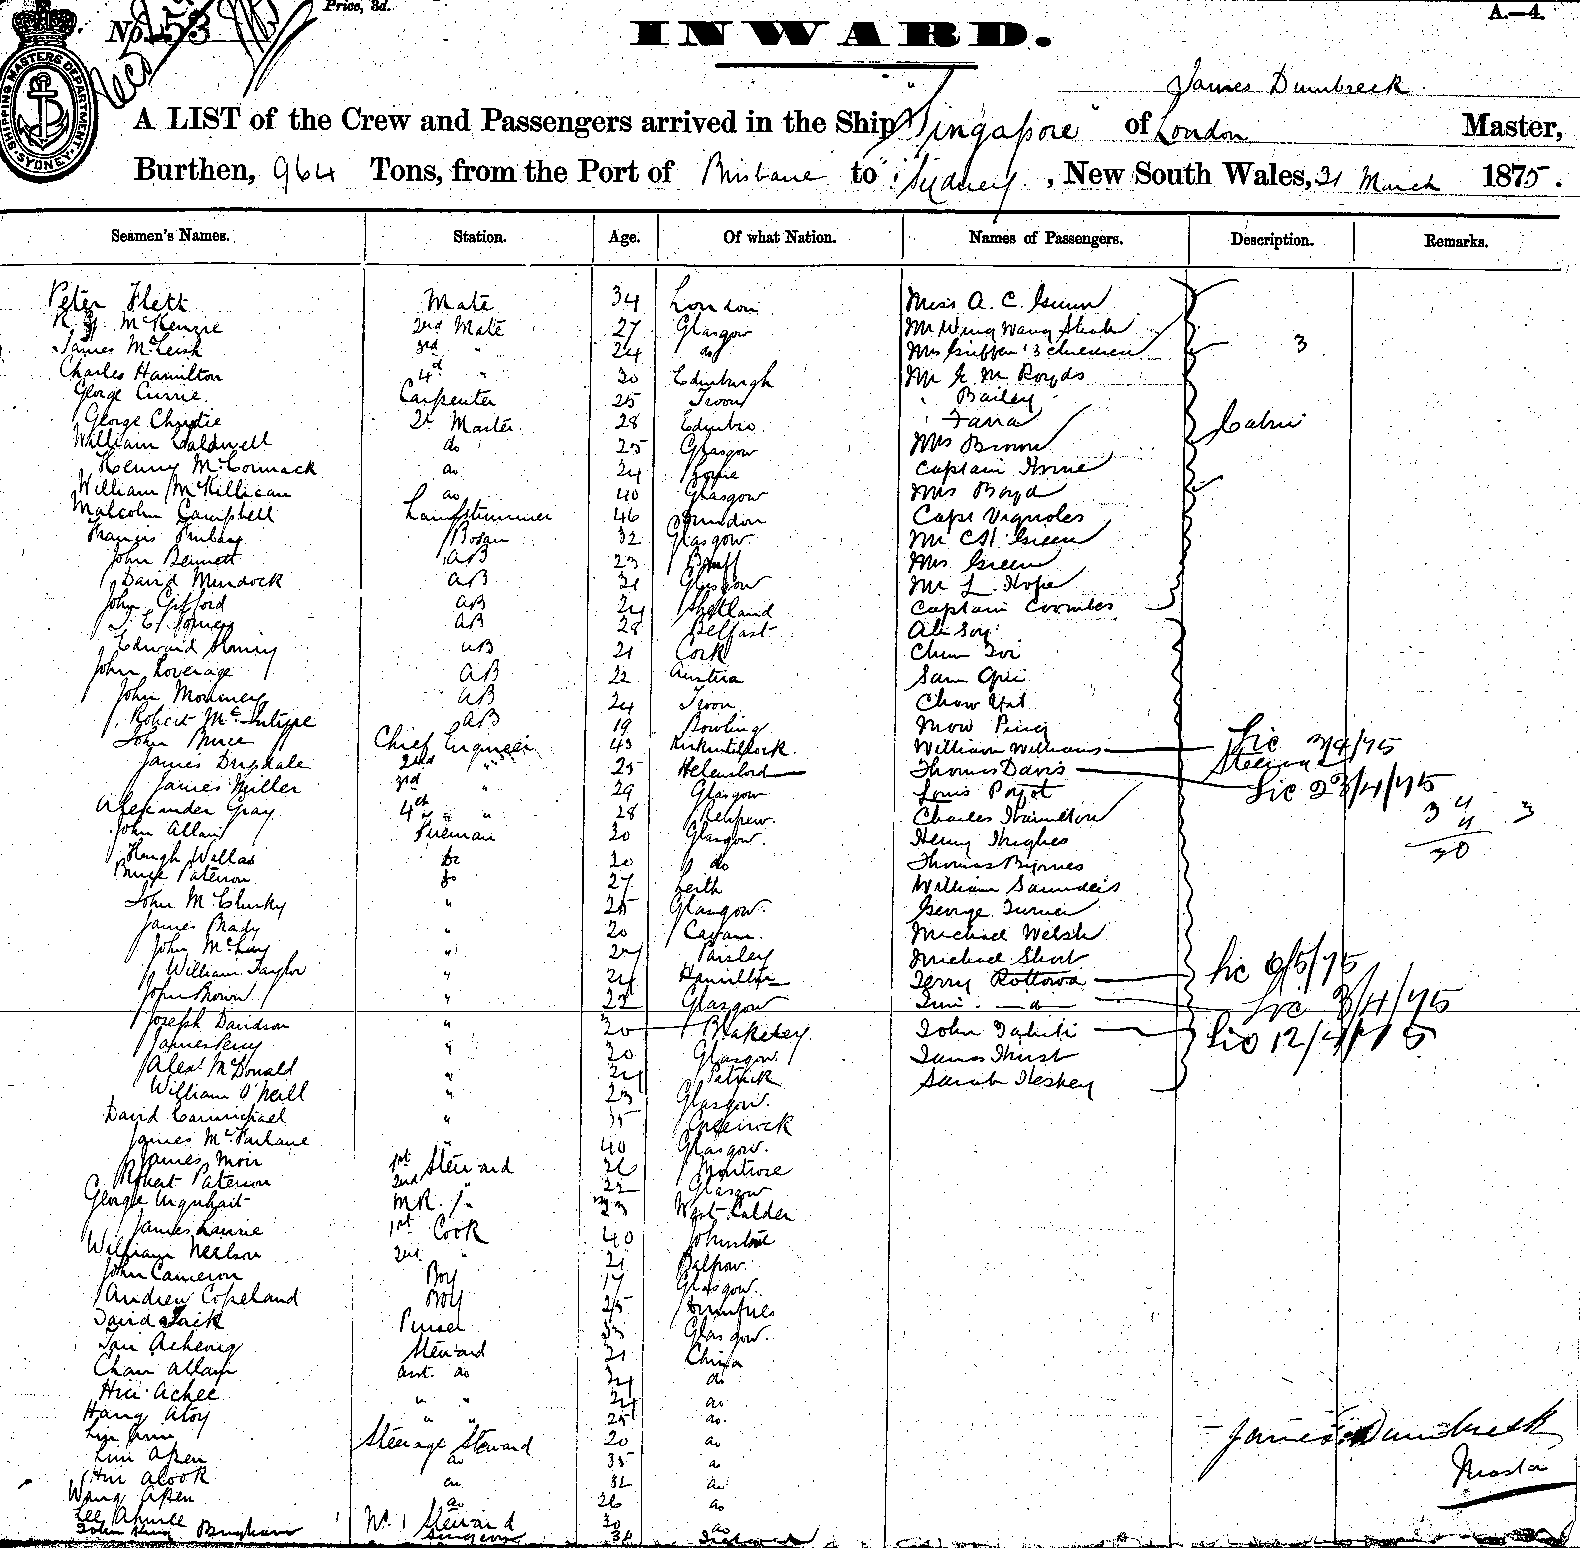 No. 153
Price, 3d.
A.—4.
SHIPPING MASTERS DEPARTMENT. SYDNEY.
INWARD.
James Dumbreck
A LIST of the Crew and Passengers arrived in the Ship "Singapore" of London Master,
Burthen, 964 Tons, from the Port of Brisbane to Sydney, New South Wales, 31 March 1875.
Seamen's Names. Station. Age. Of what Nation. Names of Passengers. Description. Remarks.
Peter Flett Mate 34 London Miss A. C. Gunn
McKenzie 2nd Mate 27 Glasgow Mr Wing Wang
James McLeish 3rd " 24 do Mrs Griffin 3 children 3
Charles Hamilton 4th " 20 Edinburgh Mr Royds
George Currie Carpenter 25 Troon " Bailey
George Christie 2r Master 28 " Farra Cabin
William Caldwell do 25 Glasgow Mrs Brown
Henry McCormack do 24 Captain Horne
William McKillican do 40 Glasgow Mrs Boyd
Malcolm Campbell Lamptrimmer 46 Capt Vignoles
Francis Bosun 32 Glasgow Mr C H Green
John Bennett AB 23 Banff Mrs Green
David Murdock AB 21 Glasgow Mr L. Hope
John Gifford AB 24 Shetland Captain Coombes
AB 28 Belfast Ah Soy
Edward AB 21 Cork
John Loverage AB 22 Austria Sam
John Mommery AB 24 Troon Chow
Robert McIntyre AB 19 Bowling Mow Ping
John Bruce Chief Engineer 43 Kirkintilloch William Williams Lic 3/4/75
James Drysdale 2nd " 25 Thomas Davis Steerage
James Miller 3rd " 29 Glasgow Louis Lic 23/4/75
Alexander Gray 4th " " 28 Renfrew Charles Hamilton 34 3
John Allan Fireman 20 Glasgow Henry Hughes
Hugh do 20 do Thomas Byrnes
Bruce Paterson do 27 Leith William Saunders
John McClusky " 25 Glasgow George Turner
James Brady " 20 Michael Welsh
John McLay " 24 Paisley Michael Short
William Taylor " 24 Hamilton Terry Rottowa Lic 6/5/75
John Brown " 22 Glasgow do Lic 3/4/75
Joseph Davidson " 20 Blakeley John Tahiti Lic 12/4/75
James Percy " 20 Glasgow James Hurst
Alex McDonald " 24 Patrick Sarah Heskey
William O'Neill " 23 Glasgow
David Carmichael " 35 Greenock
James McFarlane " 40 Glasgow
James Moir 1st Steward 26 Montrose
Robert Paterson 2nd " 22 Glasgow
George Urquhart M.R. " 23 West Calder
James Laurie 1st Cook 40 Johnstone
William Neilson 2nd " 21 Balfron
John Cameron Boy 17 Glasgow
Andrew Copeland Boy 25 Dumfries
David Jack Purser 33 Glasgow
Acheong Steward 21 China
Chan Allam asst. do 24 do
Hui Achee " " 24 do
Hang Atoy " " 25 do
Lin Steerage Steward 20 do
Lim Apen do 35 do
Hui Alook do 32 do
Wang Apen do 26 do
Lee No. 1 Steward 30 do
Bingham Surgeon 36
James Dumbreck
Master